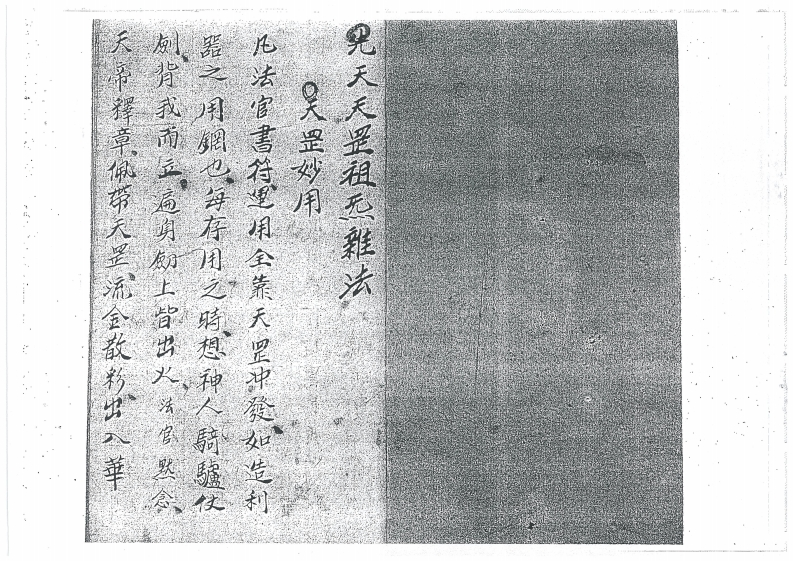 先天天罡祖炁雜法
天罡妙用
凡法官書符運用全靠天罡冲發如造利
器之用鋼也每存用之時想神人騎驢仗
劍背我而立遍身劍上皆出火法官默念
天帝釋章佩帶天罡流金散彩出入華